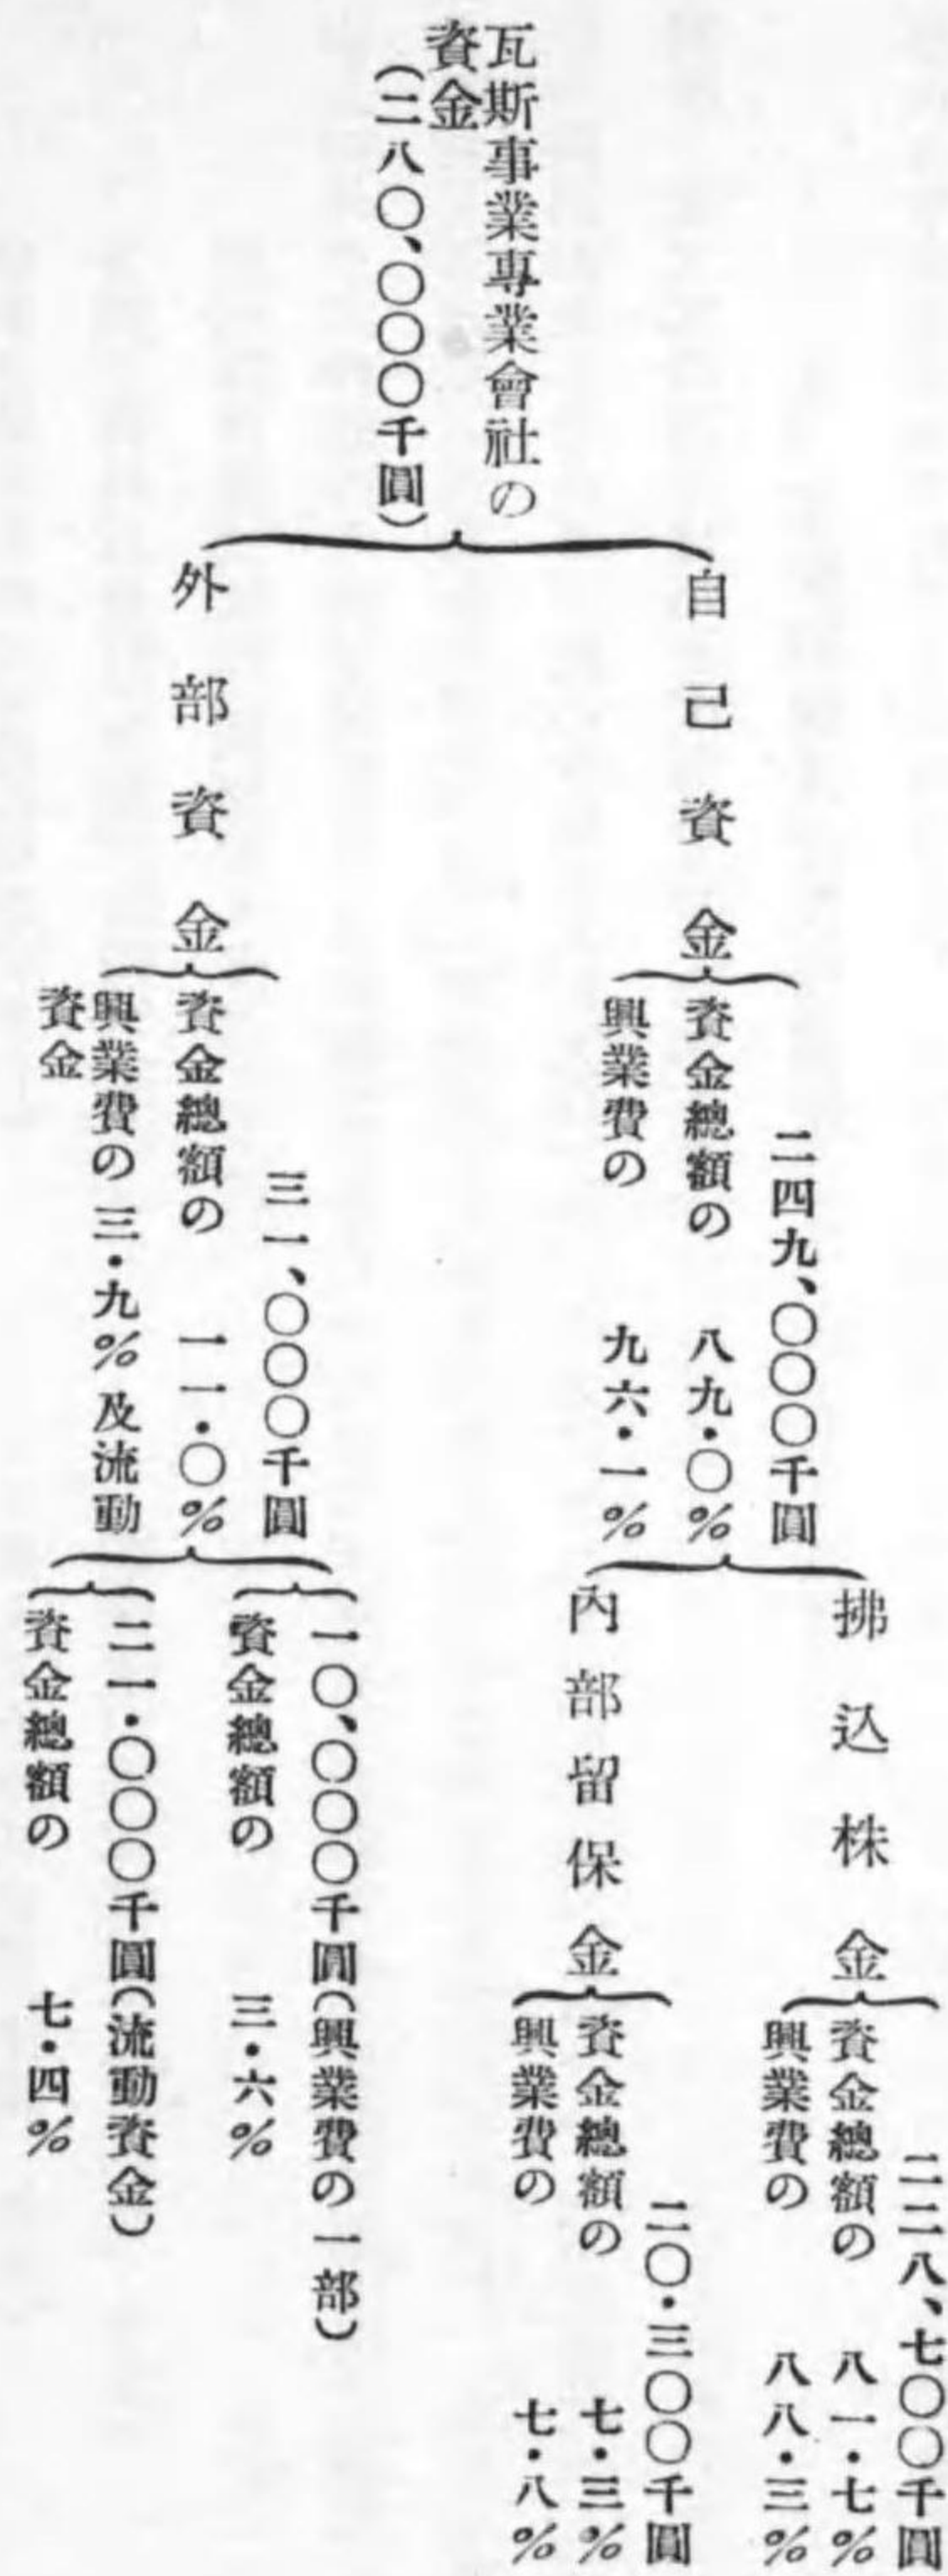 瓦斯事業專業會社の
資金
(二八〇、〇〇〇千圓)
自己資金
二四九、〇〇〇千圓
資金總額の 八九・〇%
興業費の 九六・一%
拂込株金
二二八、七〇〇千圓
資金總額の 八一・七%
興業費の 八八・三%
內部留保金
二〇・三〇〇千圓
資金總額の 七・三%
興業費の 七・八%
外部資金
三一、〇〇〇千圓
資金總額の 一一・〇%
興業費の 三・九%及流動
資金
一〇、〇〇〇千圓(興業費の一部)
資金總額の 三・六%
二一・〇〇〇千圓(流動資金)
資金總額の 七・四%